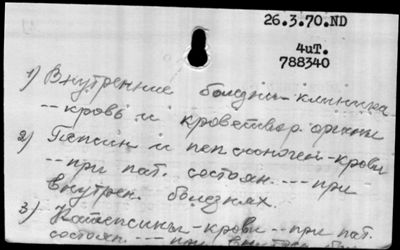 26.3.70.ND
4uT.
788340
1) Внутренние болезни-клиника
-- кровь и кроветвор. органы
2) Пепсин и пепсиноген-крови
--- при пат. состоян. --- при
внутрен. болезнях.
3) Катепсины-крови --- при пат.
состоян. --- при внутрен.